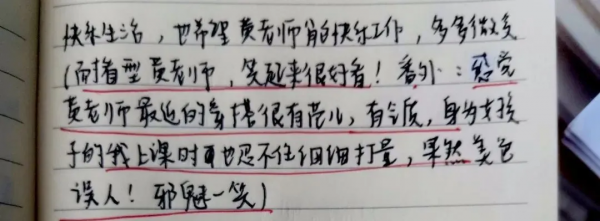 快乐生活，也希望黄老师能够快乐工作，多多微笑
(耐看型黄老师，笑起来很好看！番外：感觉
黄老师最近的穿搭很有范儿，有气质，身为女孩
子的我上课时也忍不住细细打量，果然美色
误人！邪魅一笑)